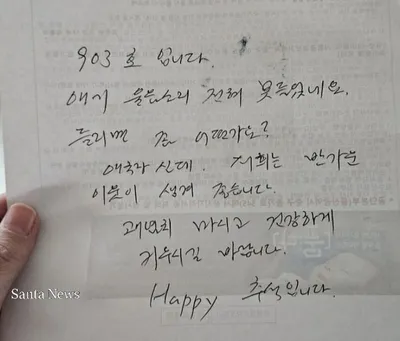 903호 입니다.
애기 울음소리 전혀 못들었네요.
들리면 좀 어떤가요?
애국자 신데. 저희는 반가운
이웃이 생겨 좋습니다.
괘념치 마시고 건강하게
키우시길 바랍니다.
Happy 추석입니다.
Santa News